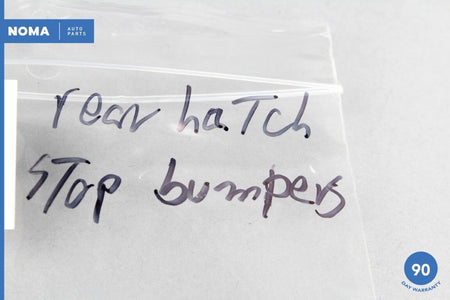 NOMA AUTO
PARTS
rear haTch
sTop bumpers
90
DAY WARRANTY